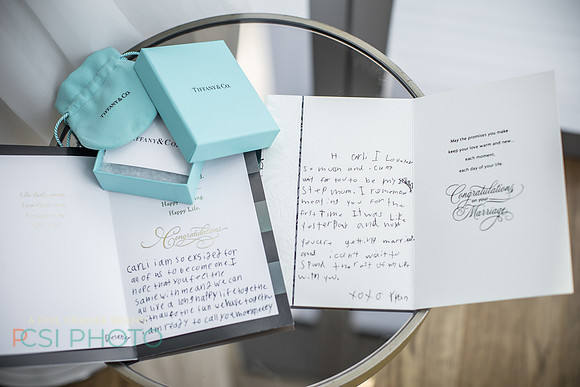 TIFFANY & CO.
TIFFANY & CO.
TIFFANY & CO.
Happy Life.
Happy Life.
Congratulations
CARLi i am so exsized for
all of us to become one I
hope that you feel the
same with me and we can
all live a long happy life together
with all of the fun we have together
i am ready to call you mom
Hi Carli I
so much and i cant
wait for you to be my
step mum. I remember
meeting you for the
first time It was like
yesterday and now
youre getting married
and i cant wait to
spend the rest of my life
with you.
XOXO Ryan
May the promises you make
keep your love warm and new...
each moment,
each day of your life.
Congratulations
on your
Marriage
PCSI PHOTO